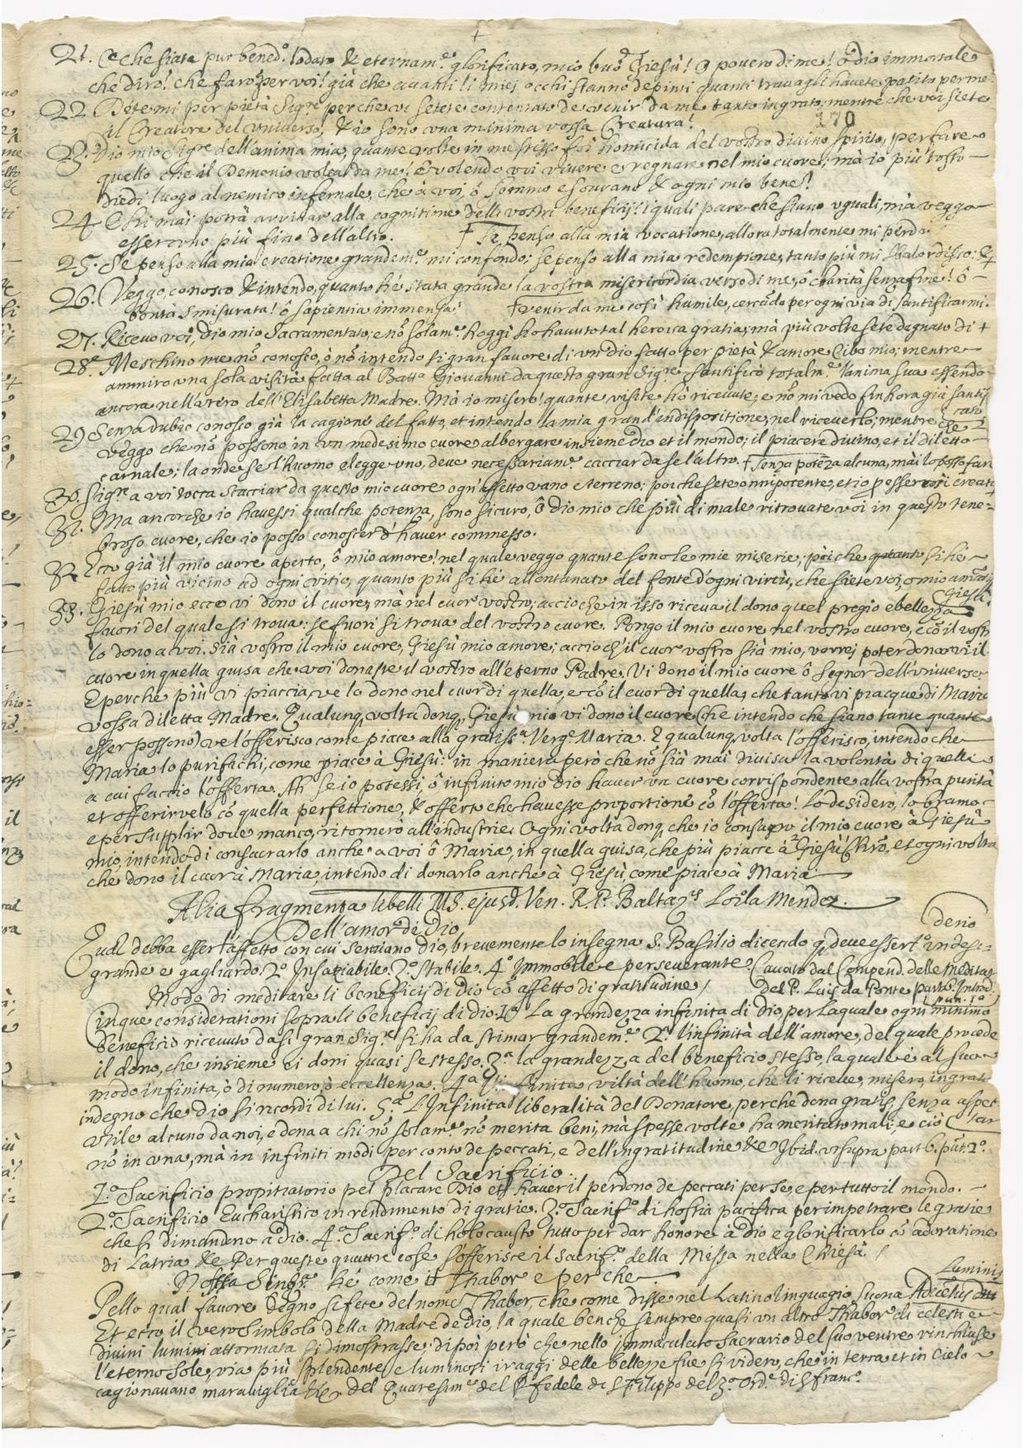 +
21. Che siate pur bened.o lodato & eternam.e glorificato, mio buō Giesù! O povero di me! ò dio immortale
che dirò! che farò per voi! già che avanti li miei occhi stanno depinti quanti travagli havete patito per me.
22. Ditemi per pietà Sig.re perche ve sete contentato de venir da me tanto ingrato, mentre che voi siete
il Creatore del Universo, & io sono una minima vossa Creatura!
170
23. Dio mio Sig.re dell'anima mia, quante volte in me stesso foi homicida del vostro divino spirito, per fare
quello che il Demonio volea da me. E volendo voi vivere e regnare nel mio cuore, mà io più tosto
diedi luogo al nemico infernale, che à voi ò sommo e sourano & ogni mio bene!
24. Chi mai potrà arrivar alla cognitione delli vostri beneficij! li quali pare che siano uguali, mà veggo
esser uno più fino dell'altro. + Se penso alla mia vocatione, allora totalmente mi perdo.
25. Se penso alla mia creatione grandem.e mi confondo; se penso alla mia redemptione, tanto più mi sbalordisco: & +
26. Veggo conosco & intendo, quanto hè stata grande la vostra misericordia verso di me, ò charità senza fine! ò
bontà smisurata! ò sapientia immensa! + venir da me così humile, cercādo per ogni via di santificarmi.
27. Ricevo voi, Dio mio Sacramentato, e nō solam.e hoggi ho havuto tal heroica gratia, mà più volte sete degnato di +
28. Meschino me nō conosco, ò nō intendo si gran favore di un dio fatto per pietà & amore Cibo mio; mentre
ammiro una sola visita fatta al Batt.a Giovanni da questo gran Sig.re santificò totalm.e l'anima sua essendo
ancora nell'utero dell'Elisabetta Madre. Mà io misero! quante visite hò ricevute; e nō mi vedo fin hora già santificato
29. Senza dubio conosco già la cagione del fatto, et intendo la mia grand'indispositione, nel riceverlo; mentre che
veggo che nō possono in un medesimo cuore albergare insieme dio et il mondo; il piacere divino, et il diletto
carnale; la onde se l'huomo elegge uno, deve necessariam.e cacciar da se l'altro. + senza potēza alcuna, mai lo posso fare
30. Sig.re a voi tocca scacciar da questo mio cuore ogn'affetto vano e terreno; poiche sete onnipotente, et io p esser voss
31. Ma ancorche io havessi qualche potenza, sono sicuro, ò dio mio che più di male ritrovate voi in questo tene-
broso cuore, che io posso conoscer d'haver commesso.
32. Ecco già il mio cuore aperto, ò mio amore! nel quale veggo quante sono le mie miserie; poiche quanto si hè
fatto più vicino ad ogni vitio, quanto più si hè allontanato del fonte d'ogni virtù, che siete voi, ò mio amātiss.
Giesù.
33. Giesù mio ecco vi dono il cuore, mà nel cuor vostro; accioche in isso riceva il dono quel pregio e bellezza
fuori del quale si trova; se fuori si trova del vostro cuore. Pongo il mio cuore nel vostro cuore, e cō il vostro
lo dono a voi. Sià vostro il mio cuore, Giesù mio amore; acciochè il cuor vostro sià mio, vorrei poter donarvi il
cuore in quella guisa che voi donaste il vostro all'eterno Padre. Vi dono il mio cuore ò Segnor dell'universo
E perche più vi piaccia, ve lo dono nel cuor di quella, e cō il cuor di quella, che tanto vi piacque di Maria
vossa diletta Madre. Qualunq, volta donq, Giesù mio vi dono il cuore (che intendo che siano tante quante
esser possono) ve l'offerisco come piace alla gratiss.a Verg.e Maria. E qualunq, volta l'offerisco, intendo che
Maria lo purifichi, come piace à Giesù: in maniera però che nō sià mai divisa la volontà di quelle
a cui faccio l'offerta. Ah se io potessi, ò infinito mio dio haver un cuore corrispondente alla vostra purità
et offerirvelo cō quella perfettione, & offerto che havesse proportione cō l'offerta! Lo desidero, lo bramo
e per supplir dove manco, ritornerò all'industrie. Ogni volta donq, che io consagro il mio cuore à Giesù
mio, intendo di consacrarlo anche a voi ò Maria, in quella guisa, che più piace à Giesù Christo, et ogni volta
che dono il cuor à Maria, intendo di donarlo anche à Giesù come piace à Maria.
Alia fragmenta libelli M.S. ejusd. Ven. R.P. Baltaz.s Loiola Mendez.
Dell'amor di Dio.
Qual debba esser l'affetto con cui serviano Dio, brevemente lo insegna S. Basilio dicendo q, deve esser 1.o un desiderio
grande e gagliardo. 2.o Insatiabile. 3.o Stabile. 4.o Immobile e perseverante. Cavato dal Compend. delle Meditat.
del P. Luis da Ponte part.6. Introd. pun. 1.o
Modo di meditare li beneficij di dio cō affetto di gratitudine
Cinque considerationi sopra li beneficij di dio. 1.a La grandezza infinita di dio, per la quale ogni minimo
beneficio ricevuto da si gran Sig.re si ha da stimar grandem.e 2.a l'infinità dell'amore, del quale procede
il dono, che insieme ci doni quasi se stesso. 3.a la grandezza del beneficio stesso, la quale è al suo
modo infinita, ò di numero, ò eccellenza. 4.a l'infinita viltà dell'huomo, che li riceve, misero, ingrato
indegno che dio si ricordi di lui. 5.a L'Infinita liberalità del Donatore, perche dona gratis, senza aspettar
utile alcuno da noi, e dona a chi nō solam.e nō merita beni, ma spesse volte ha meritato mali; e ciò
nō in una, mà in infiniti modi per conto de peccati, e dell'ingratitudine &c Ibid. ut supra part. 6. pūt. 2.o
Del Sacrificio.
1.o Sacrificio propitiatorio pel placare Dio et haver il perdono de peccati per se, e per tutto il mondo.
2.o Sacrificio Eucharistico in rendimento di gratie. 3.o Sacrif.o di hostia pacifica per impetrare le gratie
che si dimandano a Dio. 4.o Sacrif.o di holocausto tutto per dar honore à dio e glorificarlo cō adoratione
di Latria &c. Per queste quattro cose s'offerisce il sacrif.o della Messa nella Chiesa.
Nossa Senõr.a hè come il Thabor e perche.
Pello qual favore degno si fete del nome Thabor, che come disse nel Latino linguagio suona Adventus Luminis
Et ecco il vero simbolo della Madre de Dio, la quale benche sempre quasi un altro Thabor di celesti e
divini lumi attorniata si dimostrasse; di poi però che nello immaculato Sacrario del suo ventre rinchiuse
l'eterno Sole, via più splendente e luminosi i raggi delle bellezze sue si videro, che in terra et in cielo
cagionavano maraviglia &c del Quaresim.e del P. fedele di S. Filippo del 3.o Ord.e di S. franc.o